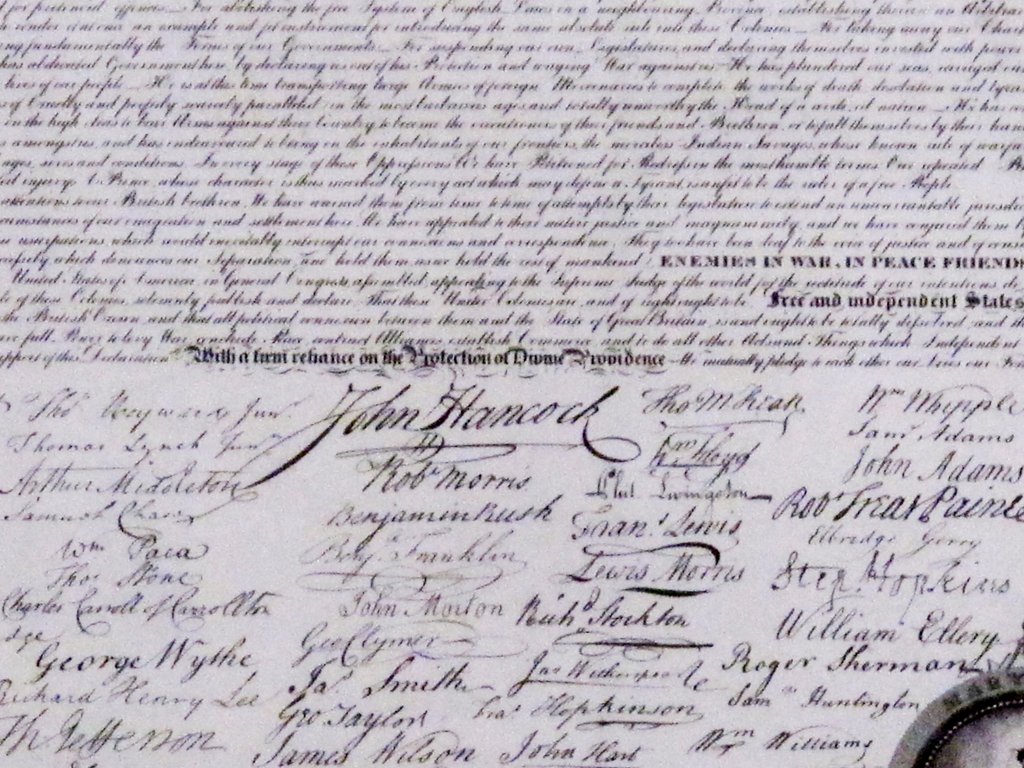 for pretended offences For abolishing the free System of English Laws in a neighbouring Province establishing therein an Arbitrary
render it at once an example and fit instrument for introducing the same absolute rule into these Colonies For taking away our Char
ng fundamentally the Forms of our Governments For suspending our own Legislatures, and declaring themselves invested with power
has abdicated Government here, by declaring us out of his Protection and waging War against us He has plundered our seas, ravaged our
lives of our people He is at this time transporting large Armies of foreign Mercenaries to complete the works of death, desolation and tyra
s of Cruelty and perfidy scarcely paralleled in the most barbarous ages, and totally unworthy the Head of a civilized nation He has
on the high Seas to bear Arms against their Country to become the executioners of their friends and Brethren, or to fall themselves by their han
s amongst us, and has endeavoured to bring on the inhabitants of our frontiers, the merciless Indian Savages, whose known rule of warfa
ages, sexes and conditions In every stage of these Oppressions We have Petitioned for Redress in the most humble terms Our repeated
ted injury A Prince, whose character is thus marked by every act which may define a Tyrant, is unfit to be the ruler of a free People
attentions to our British brethren. We have warned them from time to time of attempts by their legislature to extend an unwarrantable jurisdic
circumstances of our emigration and settlement here We have appealed to their native justice and magnanimity, and we have conjured them by
se usurpations, which would inevitably interrupt our connections and correspondence They too have been deaf to the voice of justice and of cons
necessity which denounces our Separation, and hold them as we hold the rest of mankind ENEMIES IN WAR, IN PEACE FRIENDS
United States of America, in General Congress assembled, appealing to the Supreme Judge of the world for the rectitude of our intentions do
le of these Colonies, solemnly publish and declare That these United Colonies are, and of right ought to be Free and independent States
the British Crown and that all political connexion between them and the State of Great Britain, is and ought to be totally dissolved, and th
ave full Power to levy War, conclude Peace contract Alliances, establish Commerce and to do all other Acts and Things which Independent
support of this Declaration With a firm reliance on the Protection of Divine Providence We mutually pledge to each other our Lives our For
Thos Heyward Junr
Thomas Lynch Junr
Arthur Middleton
Samuel Chase
Wm Paca
Thos Stone
Charles Carroll of Carrollton
George Wythe
Richard Henry Lee
Th Jefferson
John Hancock
Robt Morris
Benjamin Rush
Benja Franklin
John Morton
Geo Clymer
Jas Smith
Geo Taylor
James Wilson
Tho M:Kean
Wm Floyd
Phil Livingston
Frans Lewis
Lewis Morris
Richd Stockton
Jno Witherspoon
Fras Hopkinson
John Hart
Wm Whipple
Saml Adams
John Adams
Robt Treat Paine
Elbridge Gerry
Step Hopkins
William Ellery
Roger Sherman
Samel Huntington
Wm Williams